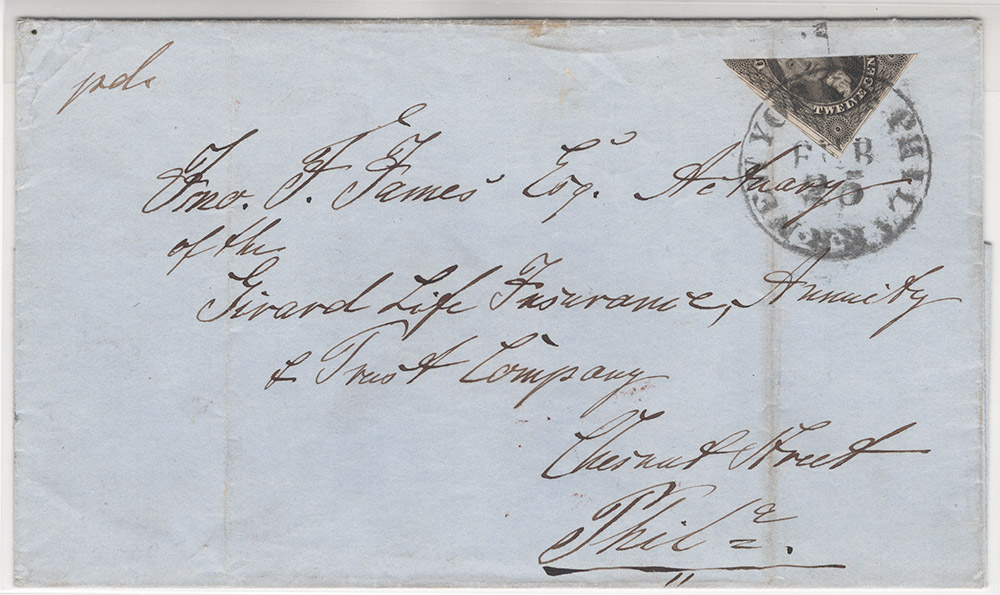 pd.
U
TWELVE CEN
NEW YO PHILA R.R.
FEB
25
Jno. F. James Esq. Actuary
of the
Girard Life Insurance, Annuity
& Trust Company
Chesnut Street
Phila.